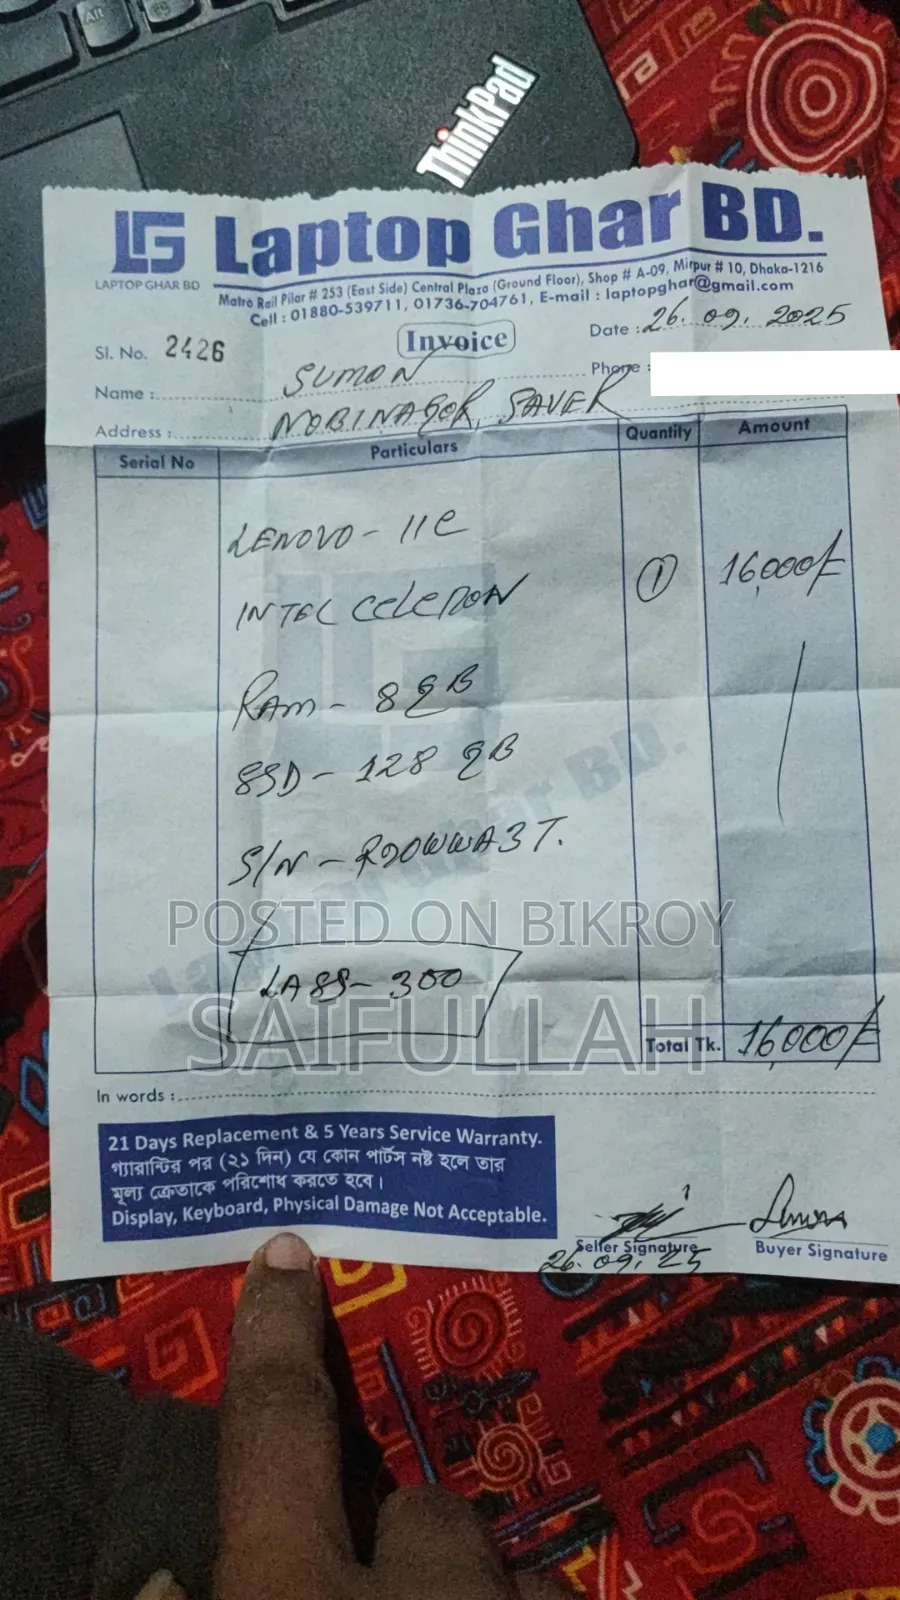 Alt
ThinkPad
LG Laptop Ghar BD.
LAPTOP GHAR BD
Matro Rail Pilar # 253 (East Side) Central Plaza (Ground Floor), Shop # A-09, Mirpur # 10, Dhaka-1216
Cell : 01880-539711, 01736-704761, E-mail : laptopghar@gmail.com
Invoice
Date : 26. 09. 2025
Sl. No. 2426
Phone :
Name : SUMON
Address : NOBINAGOR, SAVER
Serial No Particulars Quantity Amount
LENOVO - 11e 1 16,000/-
INTEL CELERON
RAM - 8 GB
SSD - 128 GB
S/N -
POSTED ON BIKROY
LASS - 300
SAIFULLAH
Total Tk. 16,000/-
In words :
21 Days Replacement & 5 Years Service Warranty.
গ্যারান্টির পর (২১ দিন) যে কোন পার্টস নষ্ট হলে তার
মূল্য ক্রেতাকে পরিশোধ করতে হবে।
Display, Keyboard, Physical Damage Not Acceptable.
Seller Signature Buyer Signature
26. 09. 25